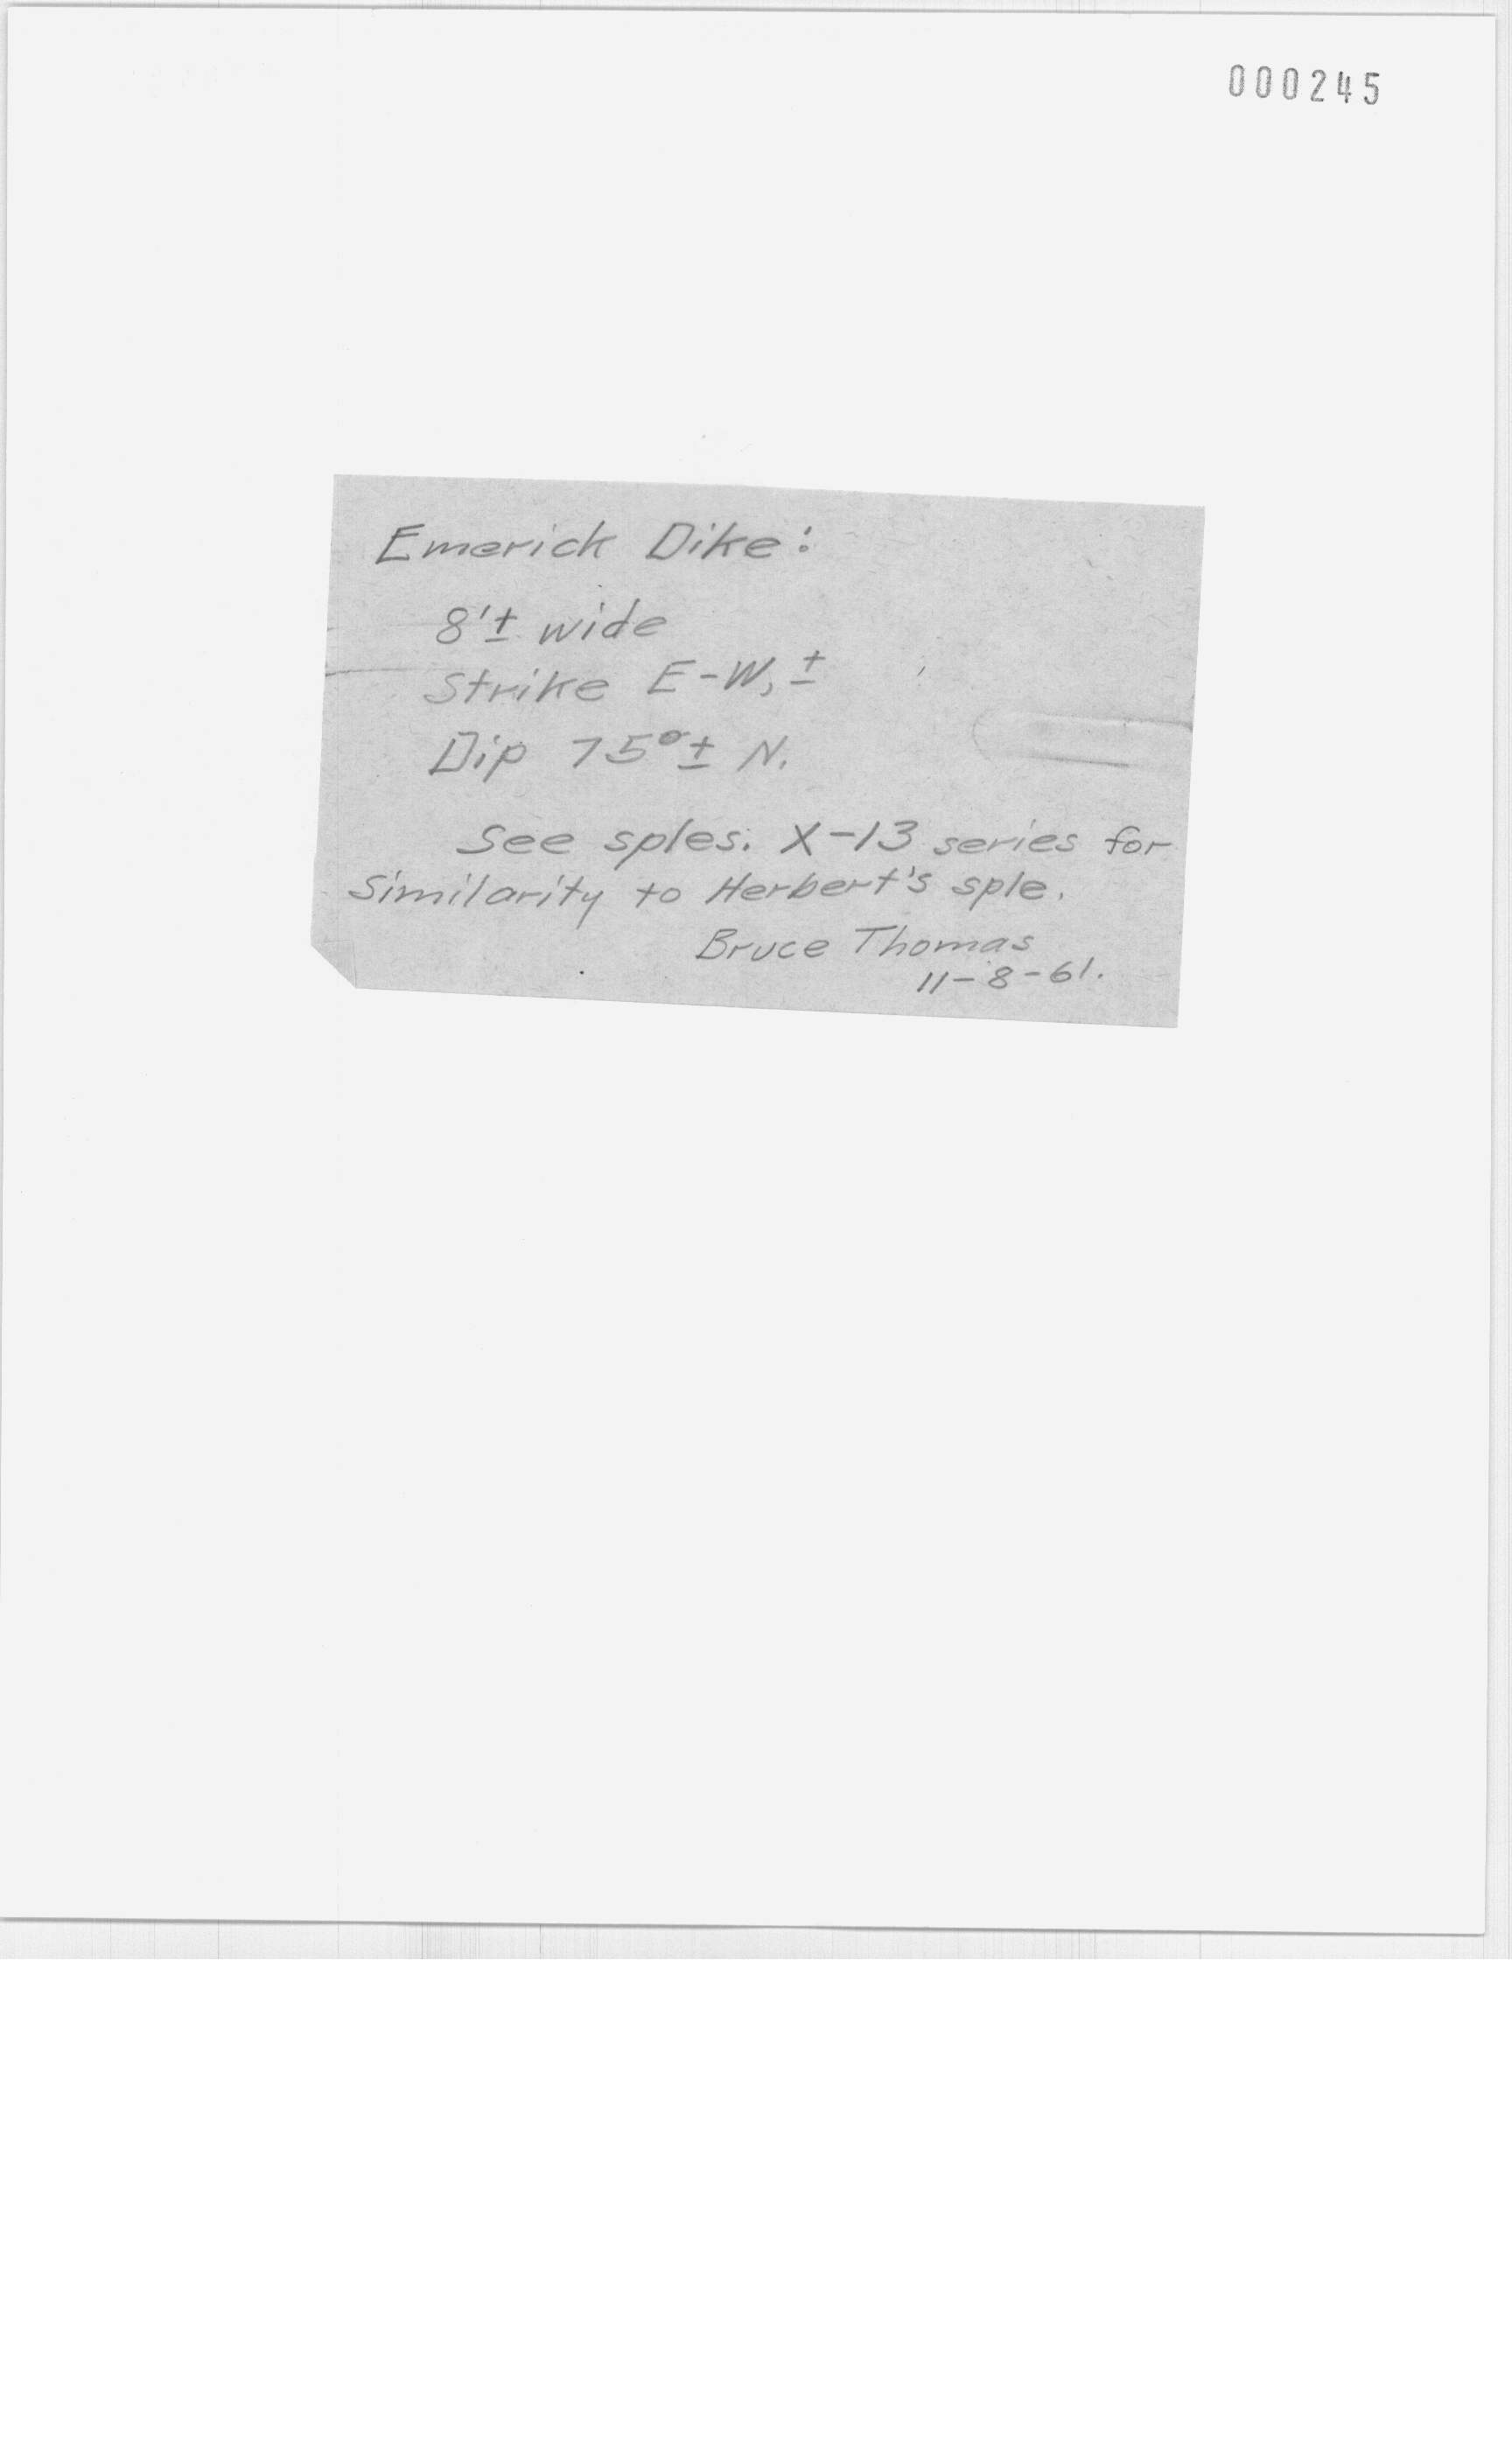 000245
Emerick Dike:
8'± wide
Strike E-W, ±
Dip 75°± N.
See sples. X-13 series for
similarity to Herbert's sple.
Bruce Thomas
11-8-61.